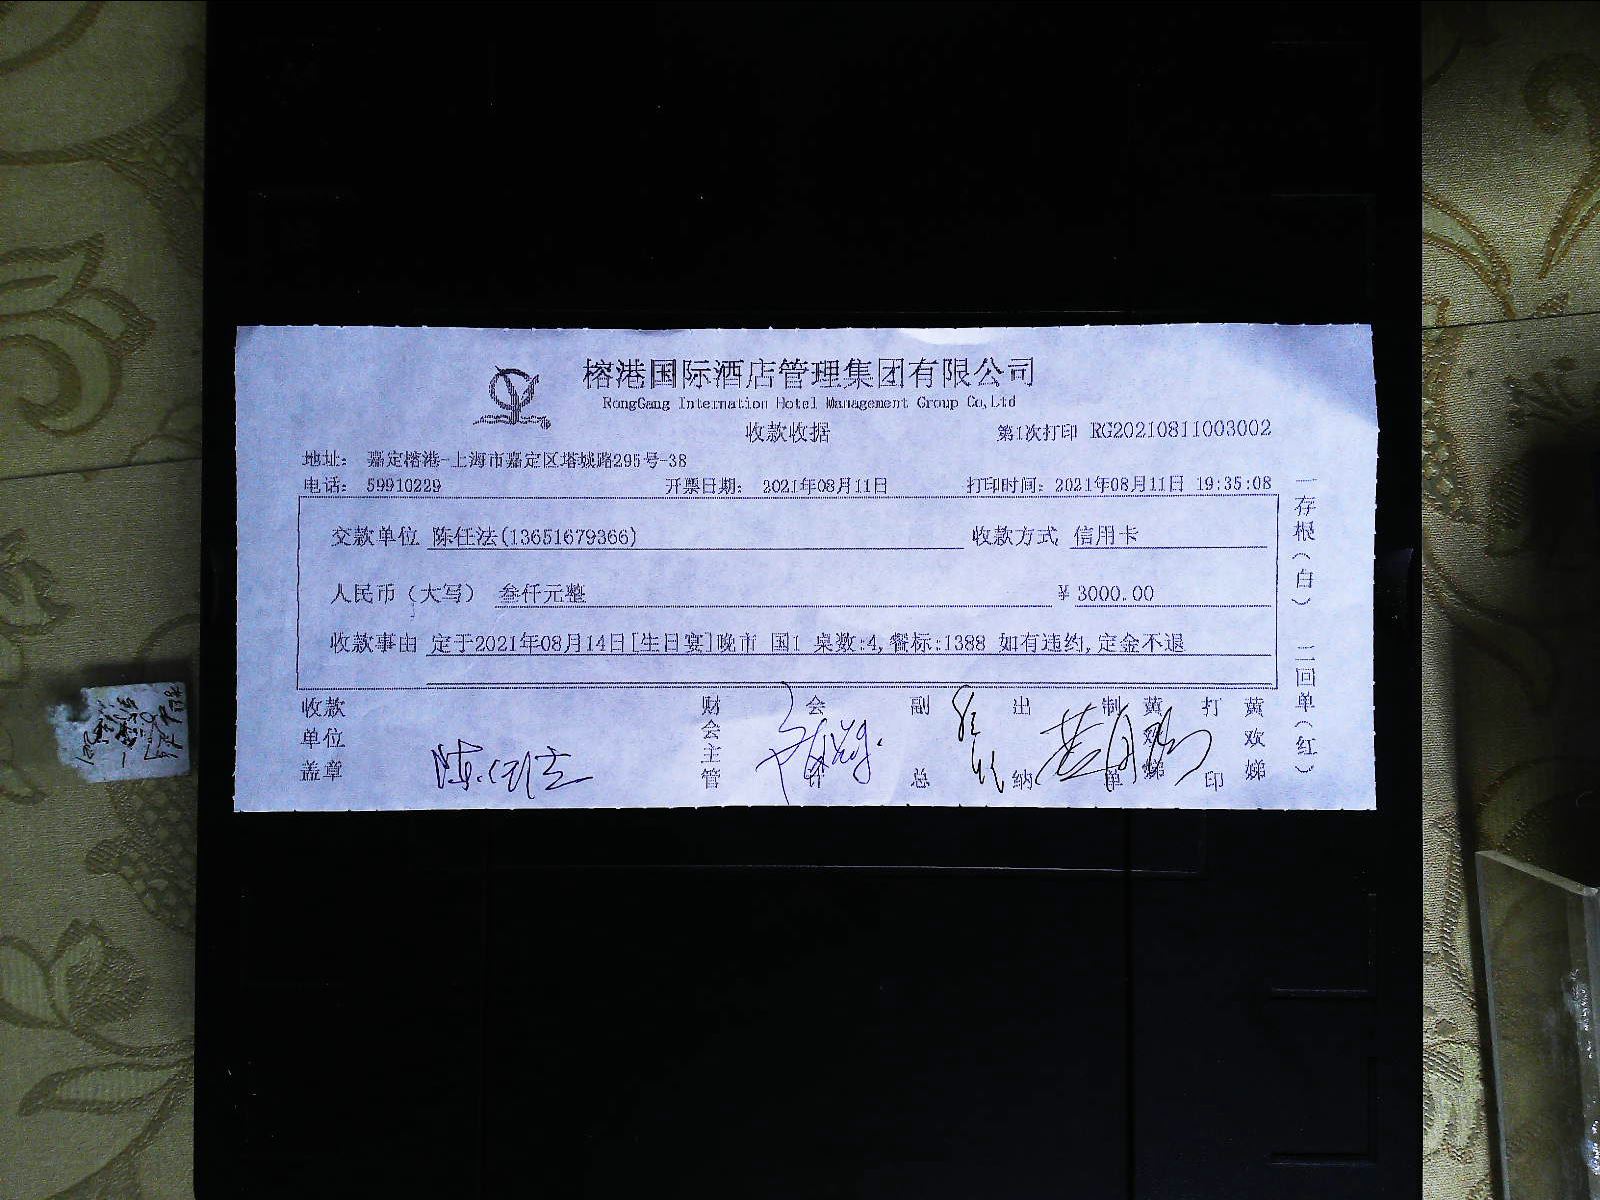 榕港国际酒店管理集团有限公司
RongGang Internation Hotel Management Group Co,Ltd
收款收据
第1次打印 RG20210811003002
地址： 嘉定榕港-上海市嘉定区塔城路295号-38
电话： 59910229 开票日期： 2021年08月11日 打印时间：2021年08月11日 19:35:08
交款单位 陈任法(13651679366) 收款方式 信用卡
人民币（大写） 叁仟元整 ¥ 3000.00
收款事由 定于2021年08月14日[生日宴]晚市 国1 桌数:4,餐标:1388 如有违约,定金不退
收款单位盖章 陈任法 财会主管 会计 副总 出纳 制单 黄欢娣 打印 黄欢娣
一存根（白） 二回单（红）